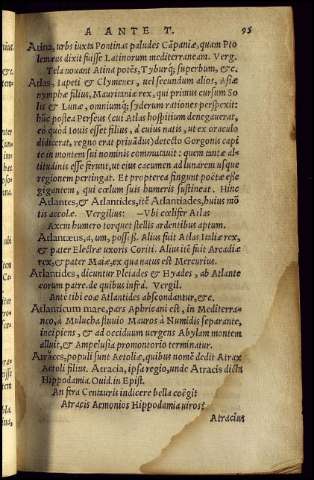 A ANTE T. 95
Atina, urbs iuxta Pontinas paludes Cāpaniæ, quam Pto
lemæus dixit fuisse Latinorum mediterraneam. Verg.
Tela nouant Atina potēs, Tyburq; superbum, &c.
Atlas, Iapeti & Clymenes, uel secundum alios, Asiæ
nymphæ filius, Mauritaniæ rex, qui primus cursum So
lis & Lunæ, omniumq; syderum rationes perspexit:
huc postea Perseus (cui Atlas hospitium denegauerat,
eò quòd Iouis esset filius, à cuius natis, ut ex oraculo
didicerat, regno erat priuādus) detecto Gorgonis capi
te in montem sui nominis commutauit: quem tantæ al-
titudinis esse ferunt, ut eius cacumen ad lunarem usque
regionem pertingat. Et propterea fingunt poëtæ esse
gigantem, qui cœlum suis humeris sustineat. Hinc
Atlantes, & Atlantides, itē Atlantiades, huius mō
tis accolæ. Vergilius: —Vbi cœlifer Atlas
Axem humero torquet stellis ardentibus aptum.
Atlantæus, a, um, poss. ß. Alius fuit Atlas Italiæ rex,
& pater Electræ uxoris Coriti. Alius itē fuit Arcadiæ
rex, & pater Maiæ, ex qua natus est Mercurius.
Atlantides, dicuntur Pleiades & Hyades, ab Atlante
eorum patre. de quibus infrà. Vergil.
Ante tibi eoæ Atlantides abscondantur, &c.
Atlanticum mare, pars Aphricani est, in Mediterra-
neo, à Molucha fluuio Mauros à Numidis separante,
incipiens, & ad occiduum uergens Abylam montem
alluit, & Ampelusia promontorio terminatur.
Atraces, populi sunt Aetoliæ, quibus nomē dedit Atrax
Aetoli filius. Atracia, ipsa regio, unde Atracis dicta
Hippodamia. Ouid. in Epist.
An fera Centauris indicere bella coëgit
Atracis Aemonios Hippodamia uiros?
Atracius